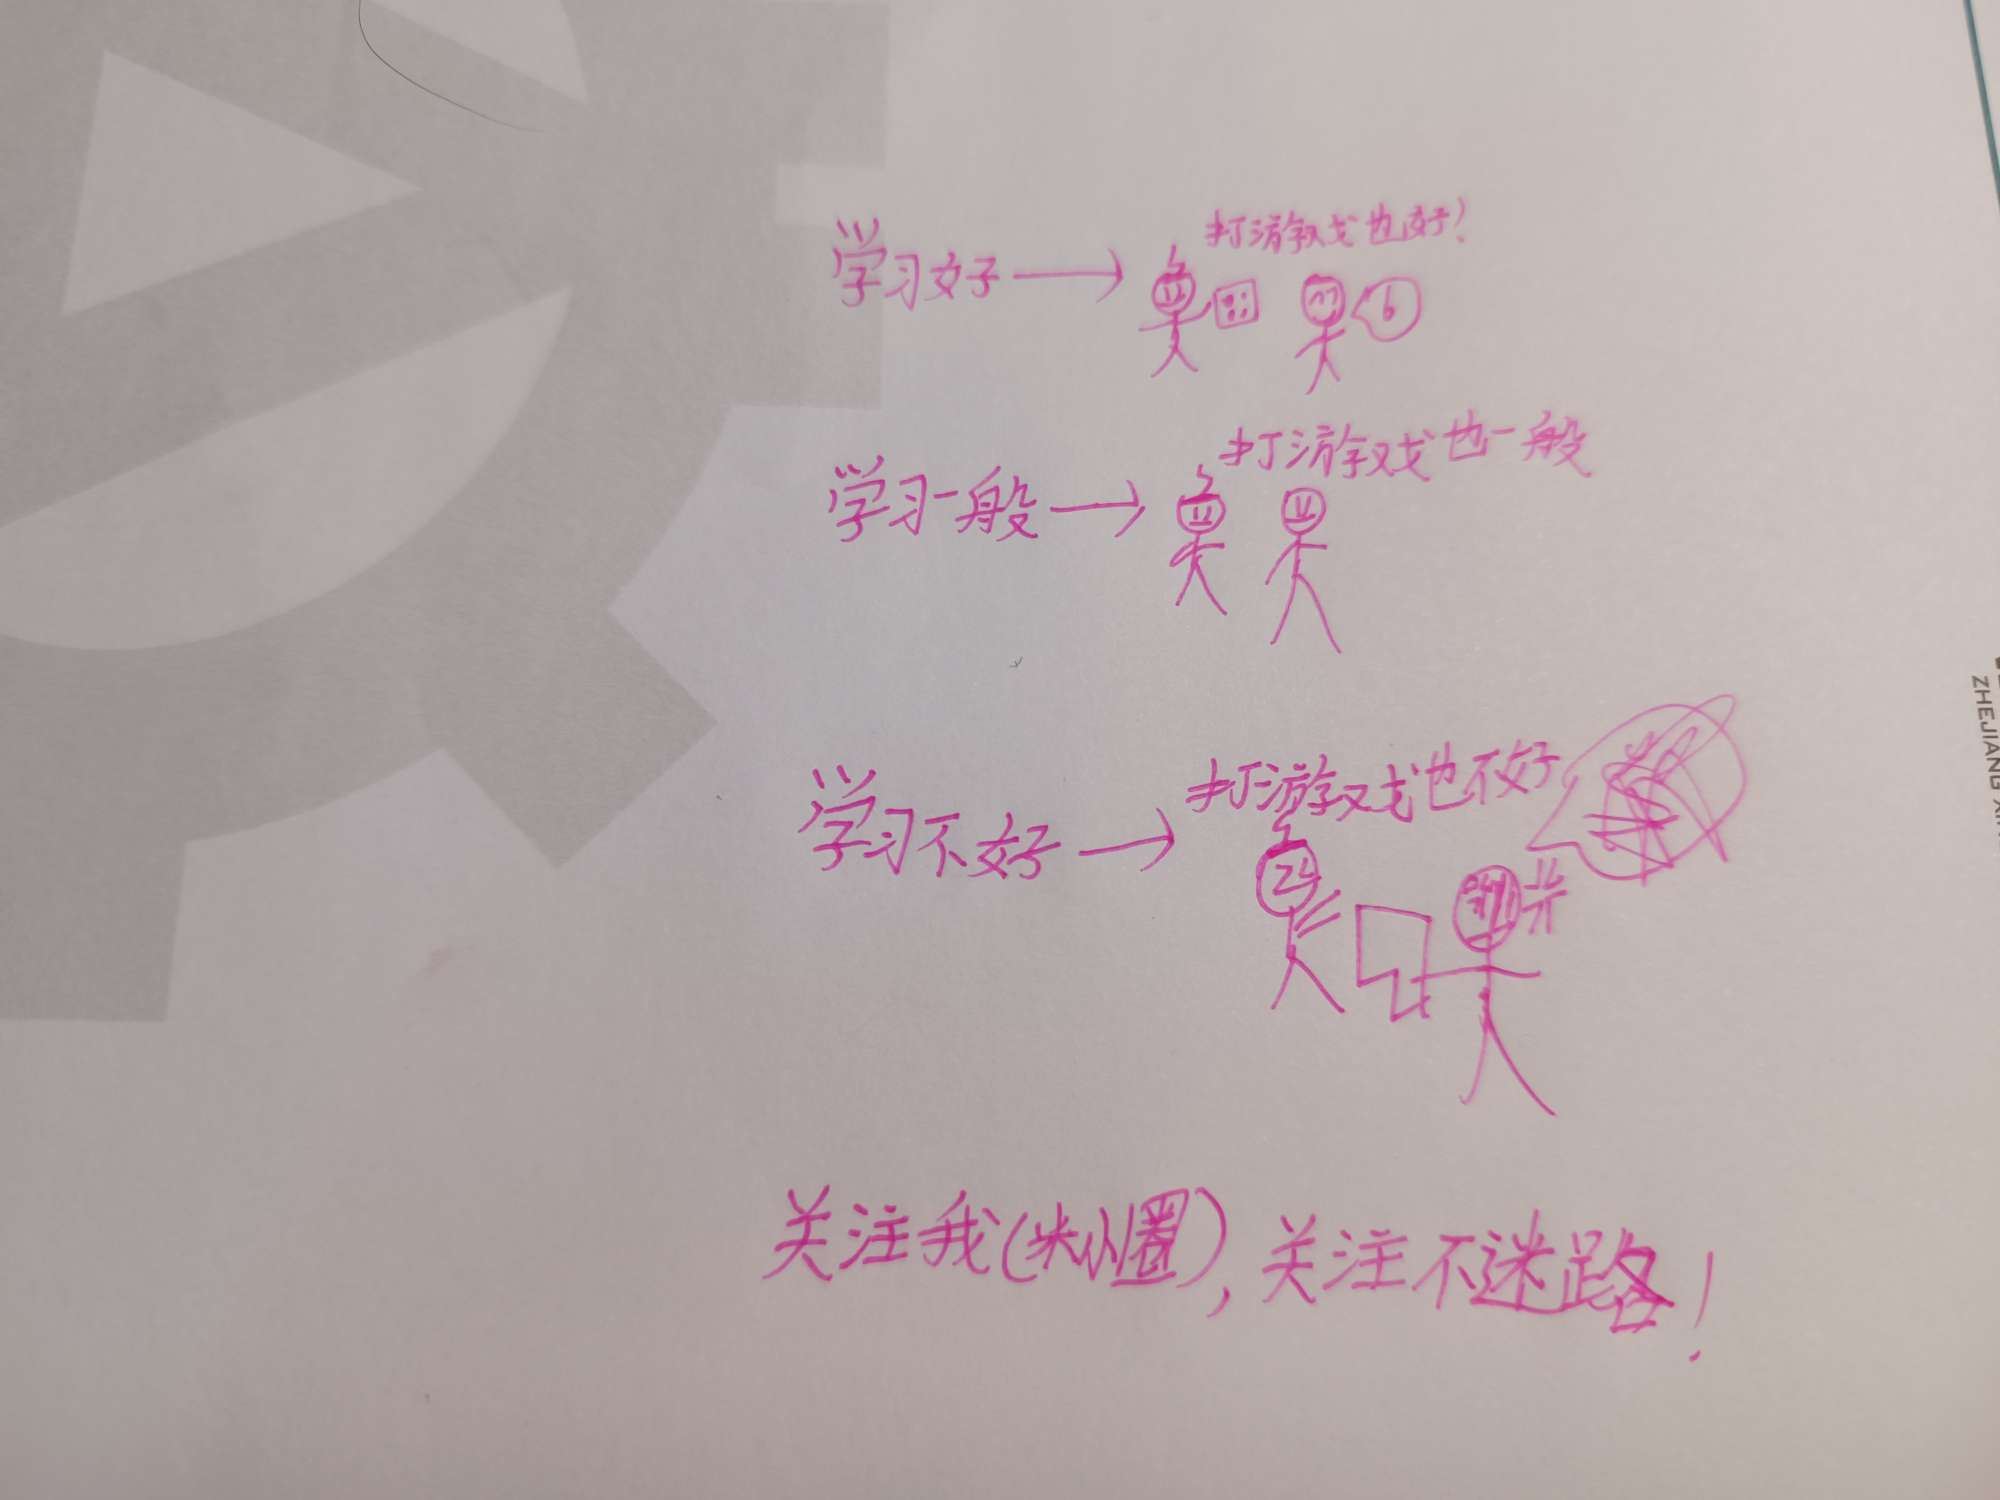 学习好
打游戏也好!
6
学习一般
打游戏也一般
学习不好
打游戏也不好
关注我(米小圈),关注不迷路!
ZHEJIANG